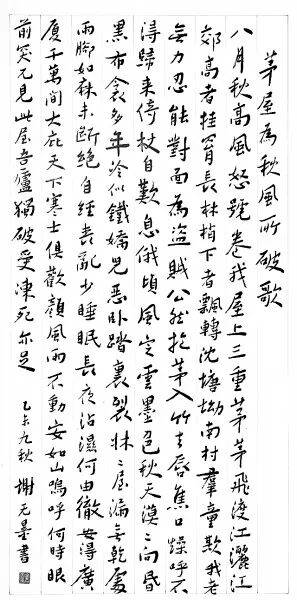 茅屋為秋風所破歌
八月秋高風怒號卷我屋上三重茅茅飛渡江灑江
郊高者挂罥長林梢下者飄轉沈塘坳南村羣童欺我老
無力忍能對面為盜賊公然抱茅入竹去唇焦口燥呼不
得歸来倚杖自歎息俄頃風定雲墨色秋天漠〻向昏
黑布衾多年冷似鐵嬌兒惡臥踏裏裂牀〻屋漏無乾處
雨腳如麻未斷絕自經喪亂少睡眠長夜沾濕何由徹安得廣
廈千萬間大庇天下寒士俱歡顏風雨不動安如山嗚呼何時眼
前突兀見此屋吾廬獨破受凍死亦足
乙未九秋 謝无量書